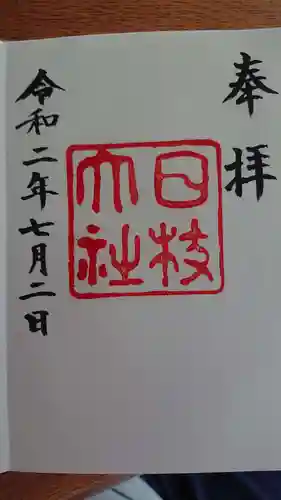 奉拝
日枝
大社
令和二年七月二日